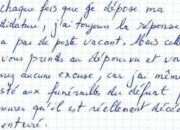 chaque fois que je dépose ma
didature, j'ai toujours la réponse
a pas de poste vacant. Mais cell
vous prends au dépourvu et vou
rez aucune excuse, car j'ai mêm
sté aux funérailles du défunt
surer qu'il est réellement décéd
enterré.